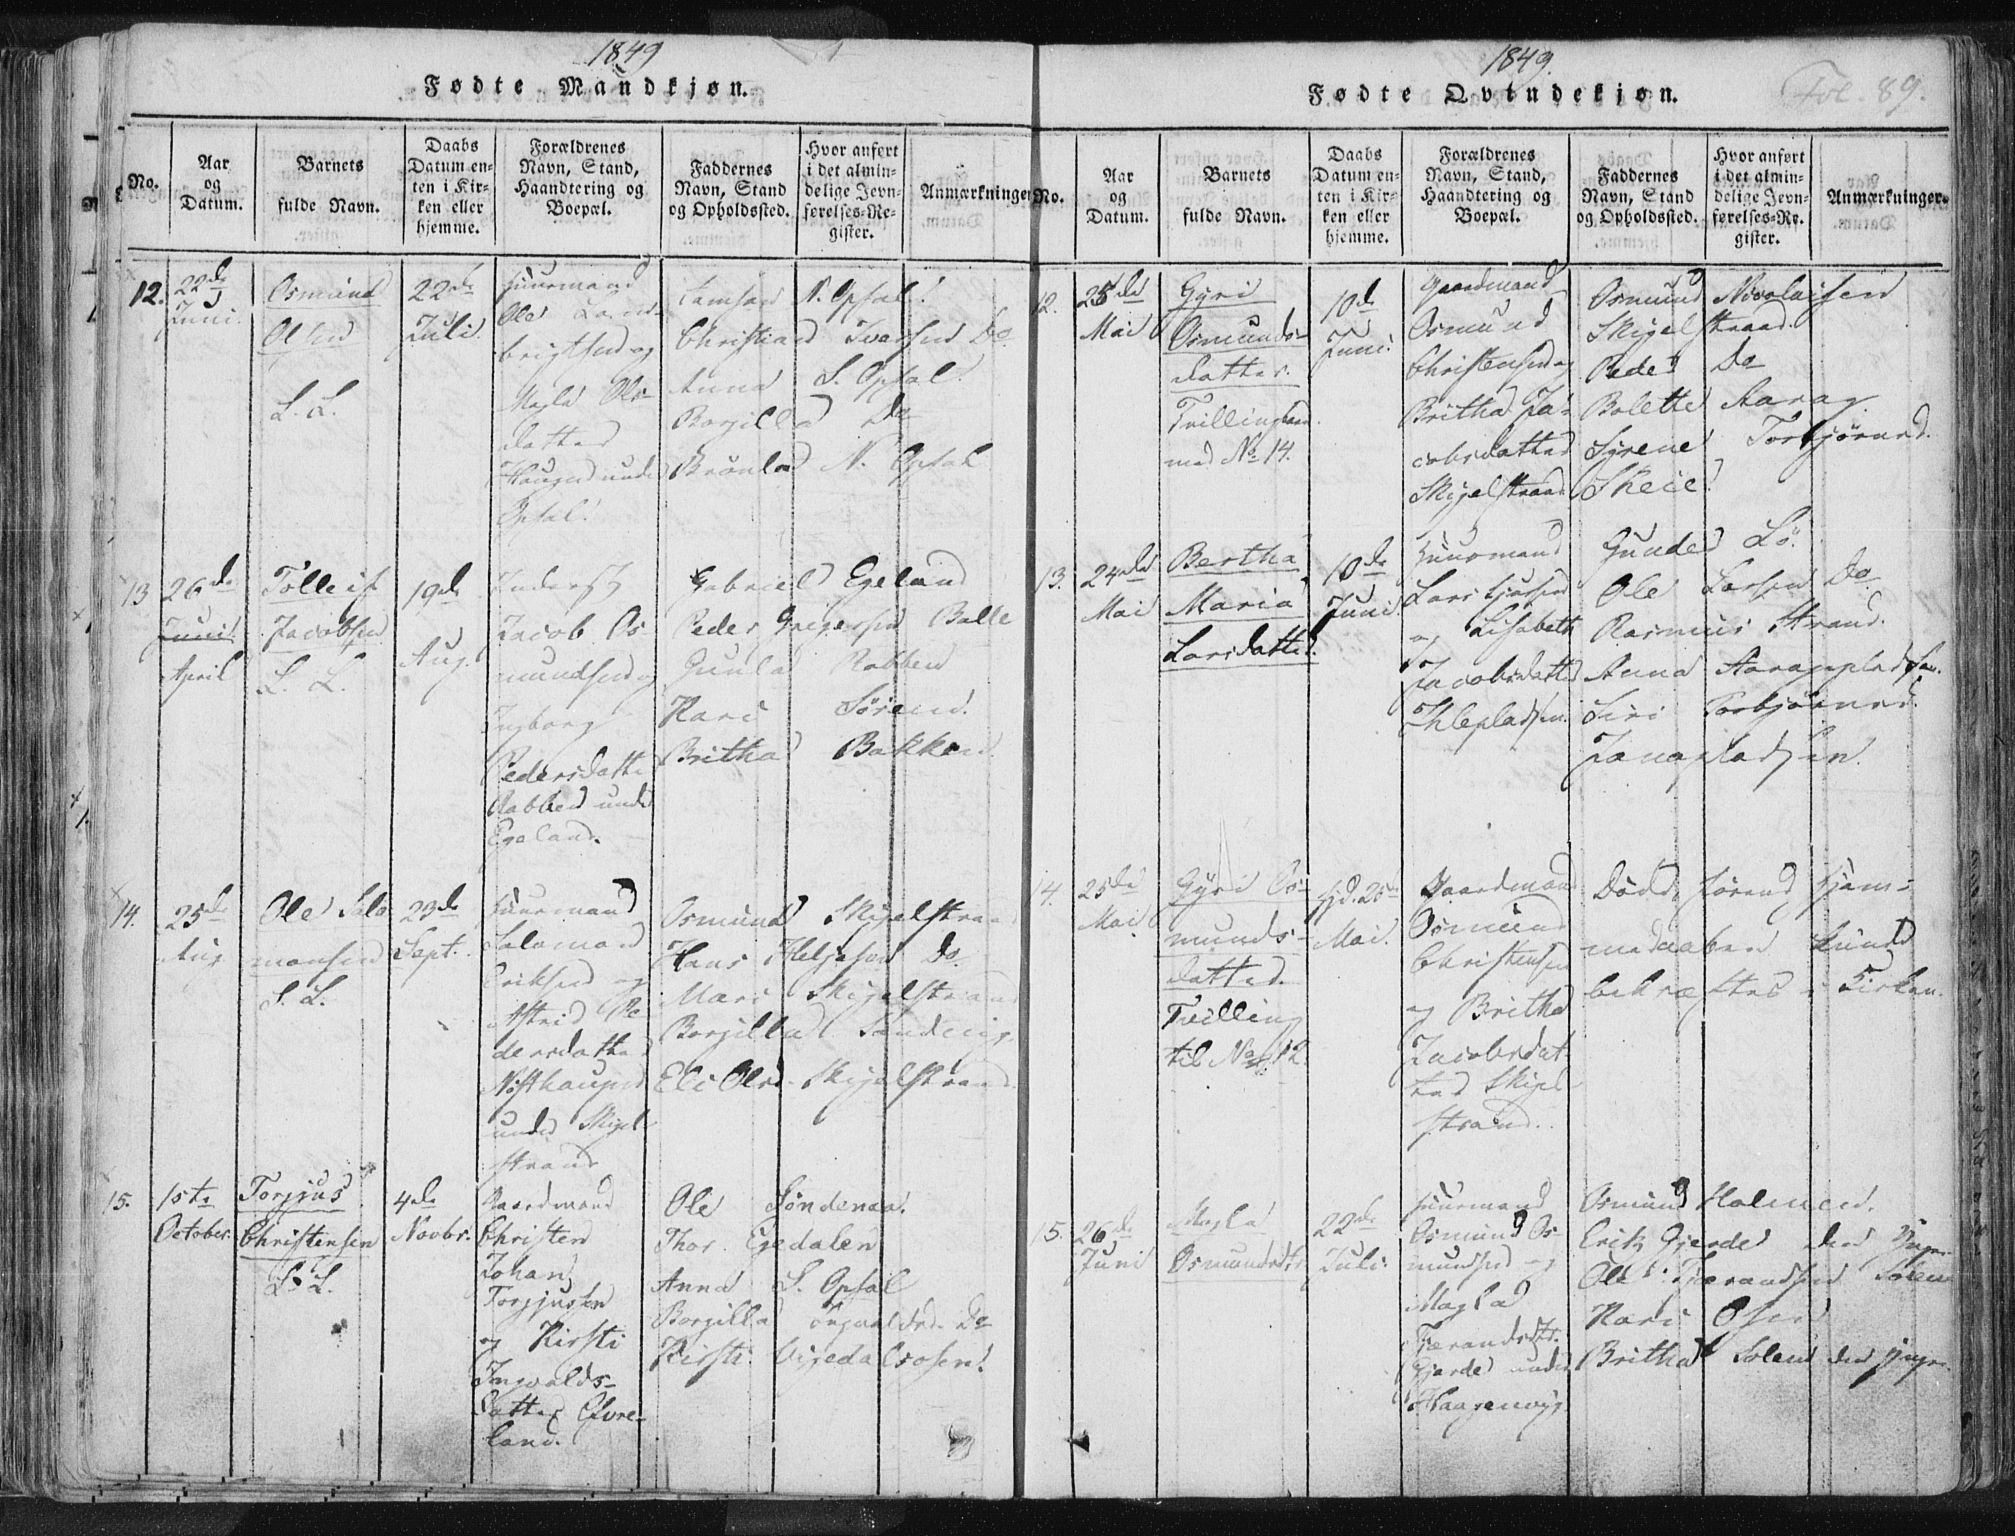 1849
Fødte Mandkjøn.
No.
Aar
og
Datum.
Barnets
fulde Navn.
Daabs
Datum en-
ten i Kir-
ken eller
hjemme.
Forældrenes
Navn, Stand,
Haandtering og
Boepæl.
Faddernes
Navn, Stand
og Opholdssted.
Hvor anført
i det almin-
delige Jevn-
førelses-Re-
gister.
Anmærkninger
12.
22de
Juni.
Osmund
Olsen
L. L.
22de
Juli.
Huusmand
Ole
brigtsen og
Magla Ols-
datter
Haugen under
Opsal.
N. Opsal.
Christian Ivarsen Do
Anna S. Opsal.
Borgilla Do
N. Opsal
13
26de
Juni
April
Tolleif
Jacobsen
L. L.
19de
Aug.
Jacob Os
mundsen og
Ingborg
Pedersdatter
Rabben under
Egeland.
Gabriel Egeland
Peder Gregersen Balle
Gunla Rabben
Kari Søreid.
Britha Bakken
14.
25de
Aug
Ole Salo
monsen
L. L.
23de
Sept.
Huusmand
Salomon
Eriksen og
Astrid Pe
dersdatter
Nøsthaugen
under Skigel
strand
Osmund Skigelstrand
Hans Helgesen Do.
Mari Skigelstrand
Borgilla Sandvig.
Eli Olsd. Skigelstrand
15.
1ste
October.
Torgjus
Christensen
L. L.
4de
Novbr.
Gaardmand
Christen
Johan
Torgjussen
og Kirsti
Ingvalds-
datter Efvre-
land.
Ole Søndenaa.
Thor Egedalen
Anna S. Opsal
Borgilla Ingvaldsd. Do
Kirsti Vigedalsosen.
1849.
Fødte Qvindekjøn.
Fol. 89.
No.
Aar
og
Datum.
Barnets
fulde Navn.
Daabs
Datum en-
ten i Kir-
ken eller
hjemme.
Forældrenes
Navn, Stand,
Haandtering og
Boepæl.
Faddernes
Navn, Stand
og Opholdssted.
Hvor anført
i det almin-
delige Jevn-
førelses-Re-
gister.
Anmærkninger.
12.
25de
Mai
Gyri
Osmunds-
datter.
Tvillingbarn
med No 14.
10de
Juni.
Gaardmand
Osmund
Christensen og
Britha Ja-
cobsdatter
Skigelstrand
Osmund Nicolaisen
Skigelstrand.
Peder Do
Bolette Aarag.
Syrene Torbjørnsd.
Skeie.
13.
24de
Mai
Bertha
Maria
Larsdatter.
10de
Juni.
Huusmand
Lars
og Lisabeth
Jacobsdatter
Ihlepladsen.
Gunder Lø.
Ole Larsen Do
Rasmus Strand.
Anna Aaragpladsen.
Siri Torbjørnsd.
Janapladsen.
14.
25de
Mai
Gyri Os-
munds-
datter.
Tvilling
til No 12.
Hjd. 25de
Mai.
Gaardmand
Osmund
Christensen
og Britha
Jacobsdat-
ter Skigel
strand.
Død førend Hjem-
medaaben kunde
bekræftes i Kirken.
15.
26de
Juni
Magla
Osmundsdtr
22de
Juli.
Huusmand
Osmund Os
mundsen og
Magla
Tærandsdtr.
Gjerde under
Haagenvig.
Osmund Holmen.
Erik Gjerde den Yngre
Ole Tærandsen
Kari Osen
Britha Solem den yngre